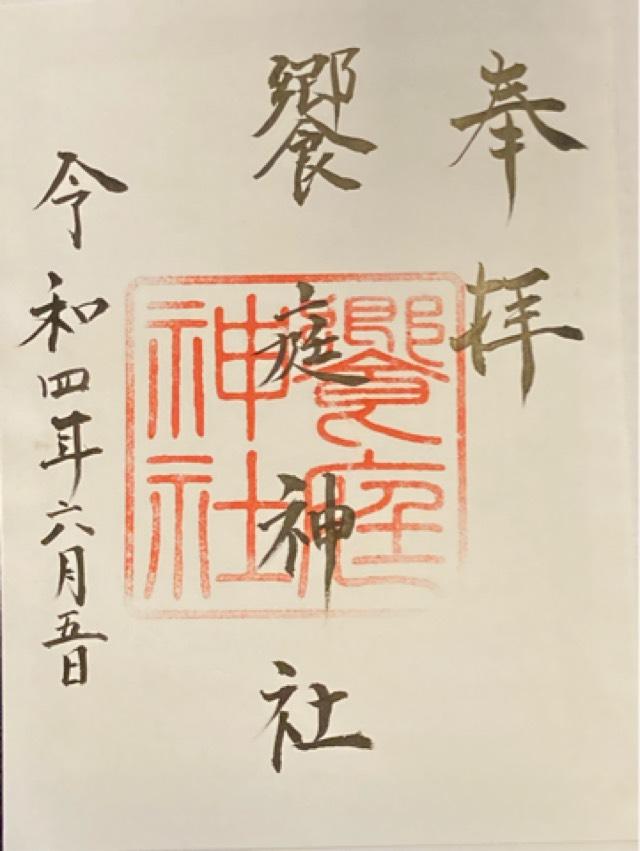 奉拝
饗庭神社
饗庭神社
令和四年六月五日